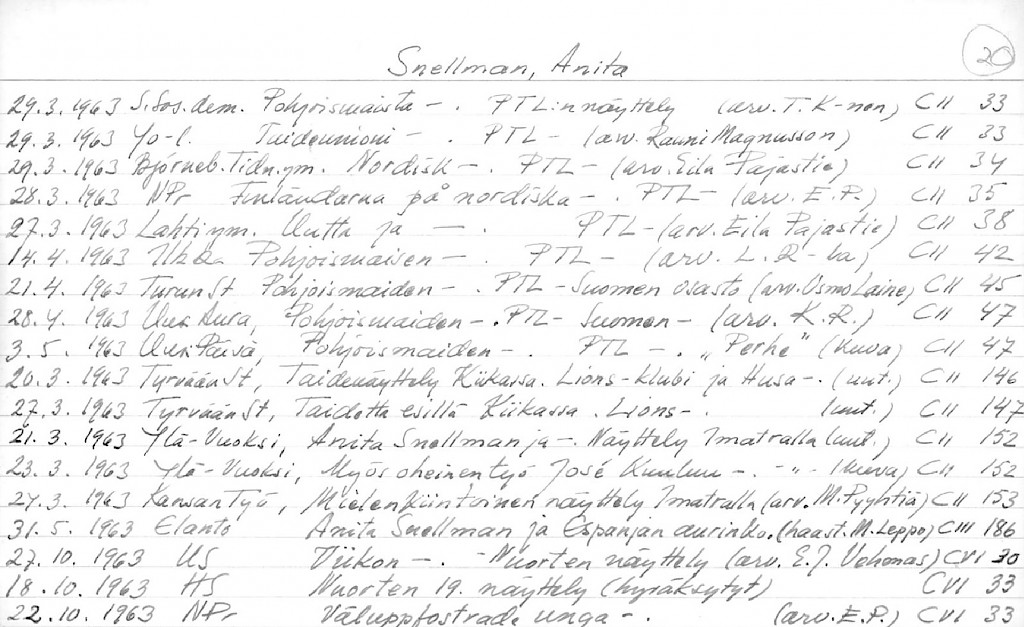 20
Snellman, Anita
29.3.1963 S.Sos.dem. Pohjoismaista – . PTL:n näyttely (arv. T. K-nen) CII 33
29.3.1963 Yo-l. Taideunioni – . PTL – (arv. Rauni Magnusson) CII 33
29.3.1963 Björneb.Tidn.ym. Nordisk – . PTL – (arv. Eila Pajastie) CII 34
28.3.1963 NPr Finländarna på nordiska – . PTL – (arv. E.P.) CII 35
27.3.1963 Lahti ym. Uutta ja – . PTL – (arv. Eila Pajastie) CII 38
14.4.1963 Pohjoismaisen – . PTL – (arv. L. R-la) CII 42
21.4.1963 TurunSt Pohjoismaiden – . PTL – Suomen osasto (arv. Osmo Laine) CII 45
28.4.1963 Uusi Aura, Pohjoismaiden – . PTL – Suomen – (arv. K.R.) CII 47
3.5.1963 Uusi Päivä, Pohjoismaiden – . PTL – . „Perhe" (kuva) CII 47
20.3.1963 TyrväänSt, Taidenäyttely Kiikassa. Lions-klubi ja Husa – . (uut.) CII 146
27.3.1963 TyrväänSt, Taidetta esillä Kiikassa. Lions – . (uut.) CII 147
21.3.1963 Ylä-Vuoksi, Anita Snellman ja – . Näyttely Imatralla (uut.) CII 152
23.3.1963 Ylä-Vuoksi, Myös oheinen työ José Kuuluu – . – " – (kuva) CII 152
27.3.1963 Kansan Työ, Mielenkiintoinen näyttely Imatralla (arv. M. Pyyhtiä) CII 153
31.5.1963 Elanto Anita Snellman ja Espanjan aurinko. (haast. M. Leppo) CIII 186
27.10.1963 US Viikon – . - Nuorten näyttely (arv. E.J. Vehmas) CVI 30
18.10.1963 HS Nuorten 19. näyttely (hyväksytyt) CVI 33
22.10.1963 NPr Väluppfostrade unga – . (arv. E.P.) CVI 33